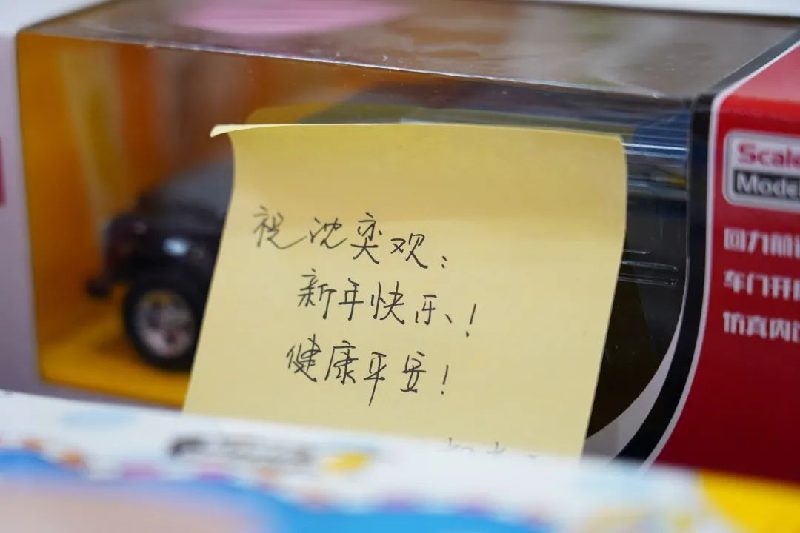 祝沈奕欢：
新年快乐！
健康平安！
Scale
Mode
回力前进
车门开
仿真内